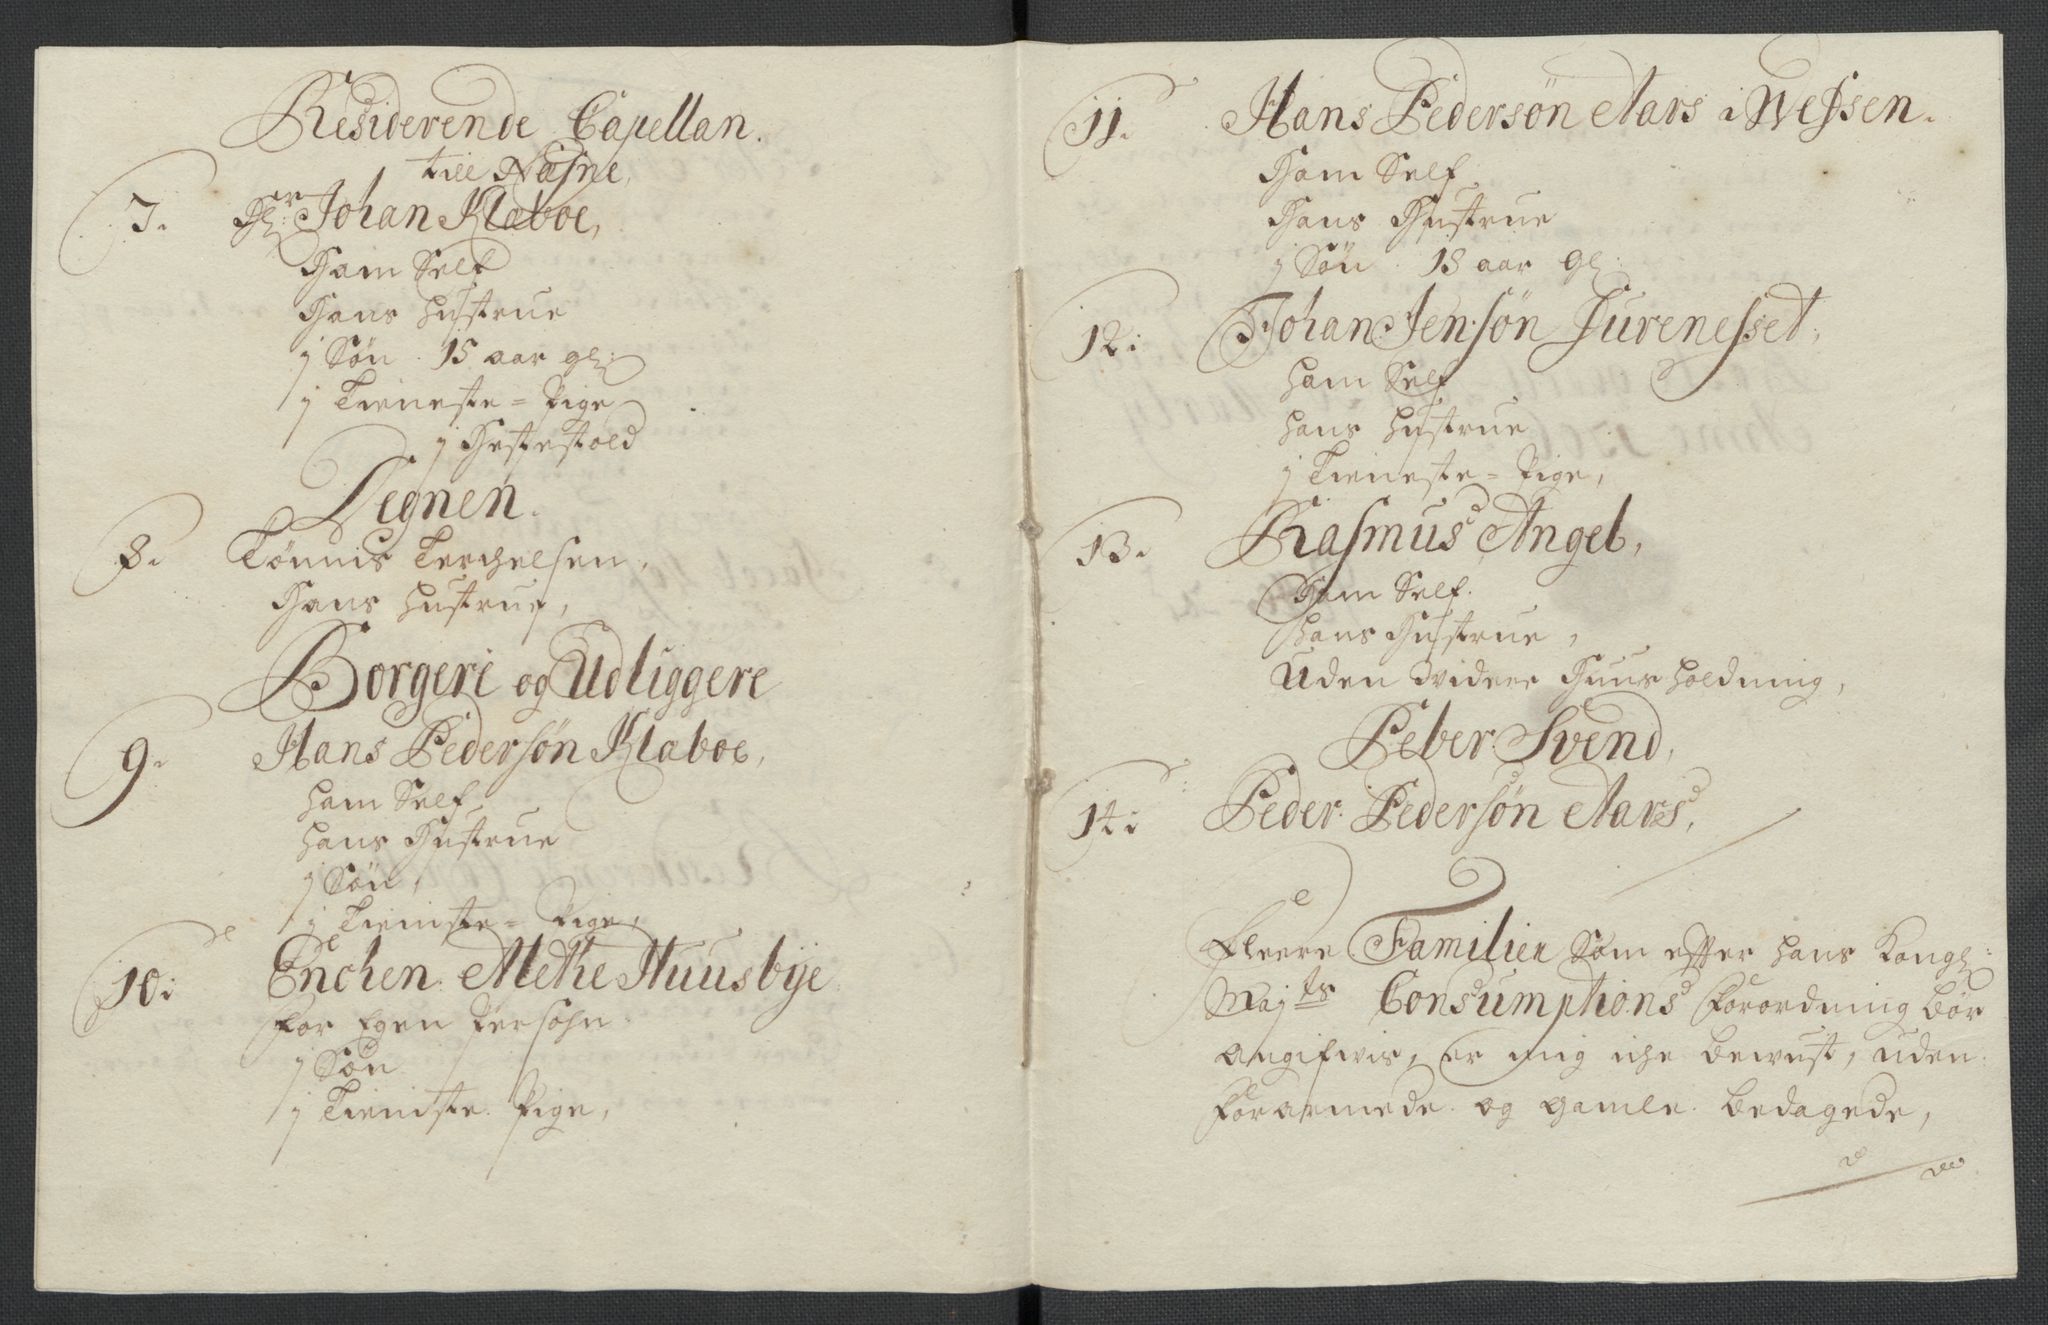 Residerende Capellan.
till Nasne,
7. Hr: Johan Klaboe,
Ham Self
Hans hustrue
j Søn. 15 aar gl:
j Tieneste=Pige
j Gietestold
Degnen.
8. Tønnis Terchelsen,
Hans hustrue,
Borgere og Udliggere
9. Hans Pedersøn Klaboe,
ham Self
hans Hustrue
j Søn,
j Tieniste=Pige,
10: Enchen Methe Huusbye
for Egen Persohn
j Søn
j Tieniste Pige,
11. Hans Pedersøn Aars i Wefssen.
Ham Self
Hans Hustrue
j Søn. 18 aar gl:
12: Johan Jensøn Furenesset,
ham Self
hans hustrue
j Tieneste=Pige,
13. Rasmus Angel,
Ham Self.
hans Hustrue,
Uden Widere Huusholdning,
Peber Svend,
14: Peder Pedersøn Aars,
Fleere Familier som effter hans Kongl:
Majts Consumptions Forordning bør
angifwis, er mig iche bewust, uden
Forarmede og gamle bedagede,